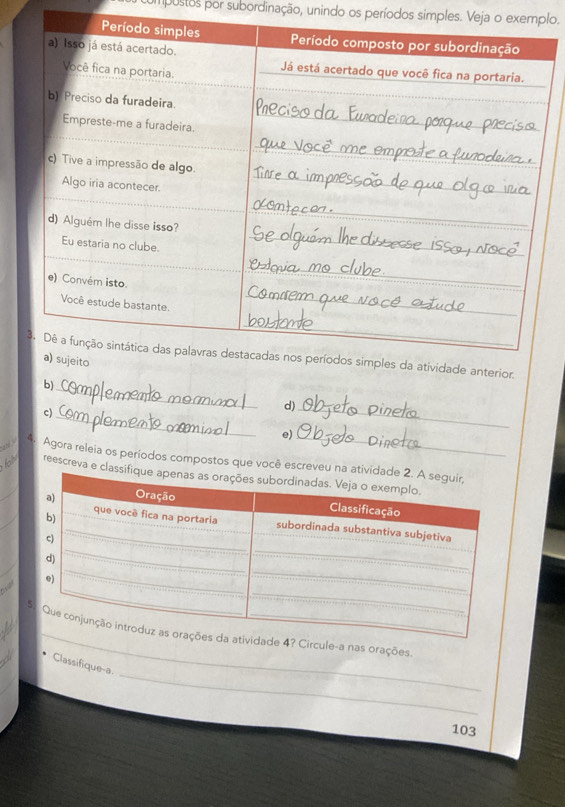 compostos por subordinação, unindo os períodos simples. Veja o exemplo.
Período simples
Período composto por subordinação
a) Isso já está acertado.
Você fica na portaria.
Já está acertado que você fica na portaria.
b) Preciso da furadeira.
Empreste-me a furadeira.
Preciso da Furadeira porque preciso
que você me empreste a furadeira.
c) Tive a impressão de algo.
Algo iria acontecer.
Tive a impressão de que algo iria
acontecer.
d) Alguém lhe disse isso?
Eu estaria no clube.
Se alguém lhe dissesse isso, você
estaria no clube.
e) Convém isto.
Você estude bastante.
Convém que você estude
bastante
3. Dê a função sintática das palavras destacadas nos períodos simples da atividade anterior.
a) sujeito
b) Complemento nominal
c) Complemento nominal
d) Objeto Direto
e) Objeto Direto
4. Agora releia os períodos compostos que você escreveu na atividade 2. A seguir,
reescreva e classifique apenas as orações subordinadas. Veja o exemplo.
Oração
Classificação
a) que você fica na portaria
subordinada substantiva subjetiva
b)
c)
d)
e)
5. Que conjunção introduz as orações da atividade 4? Circule-a nas orações.
• Classifique-a.
103